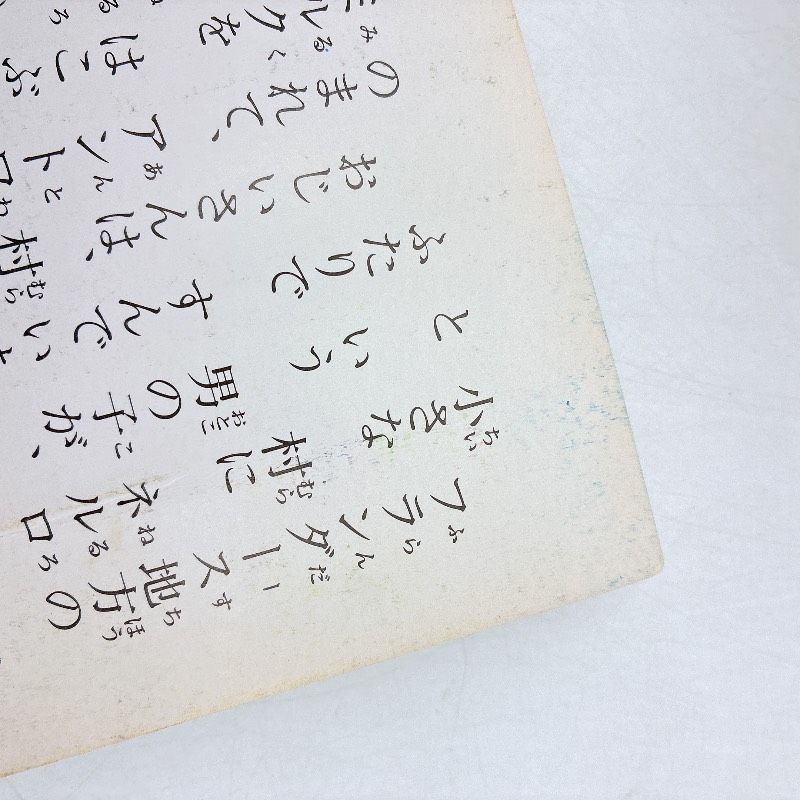 フランダース地方の
小さな 村に ネルロ
と いう 男の子が、
ふたりで すんでい
おじいさんは、 村
のまれて、 アントワ
ルクを はこぶ